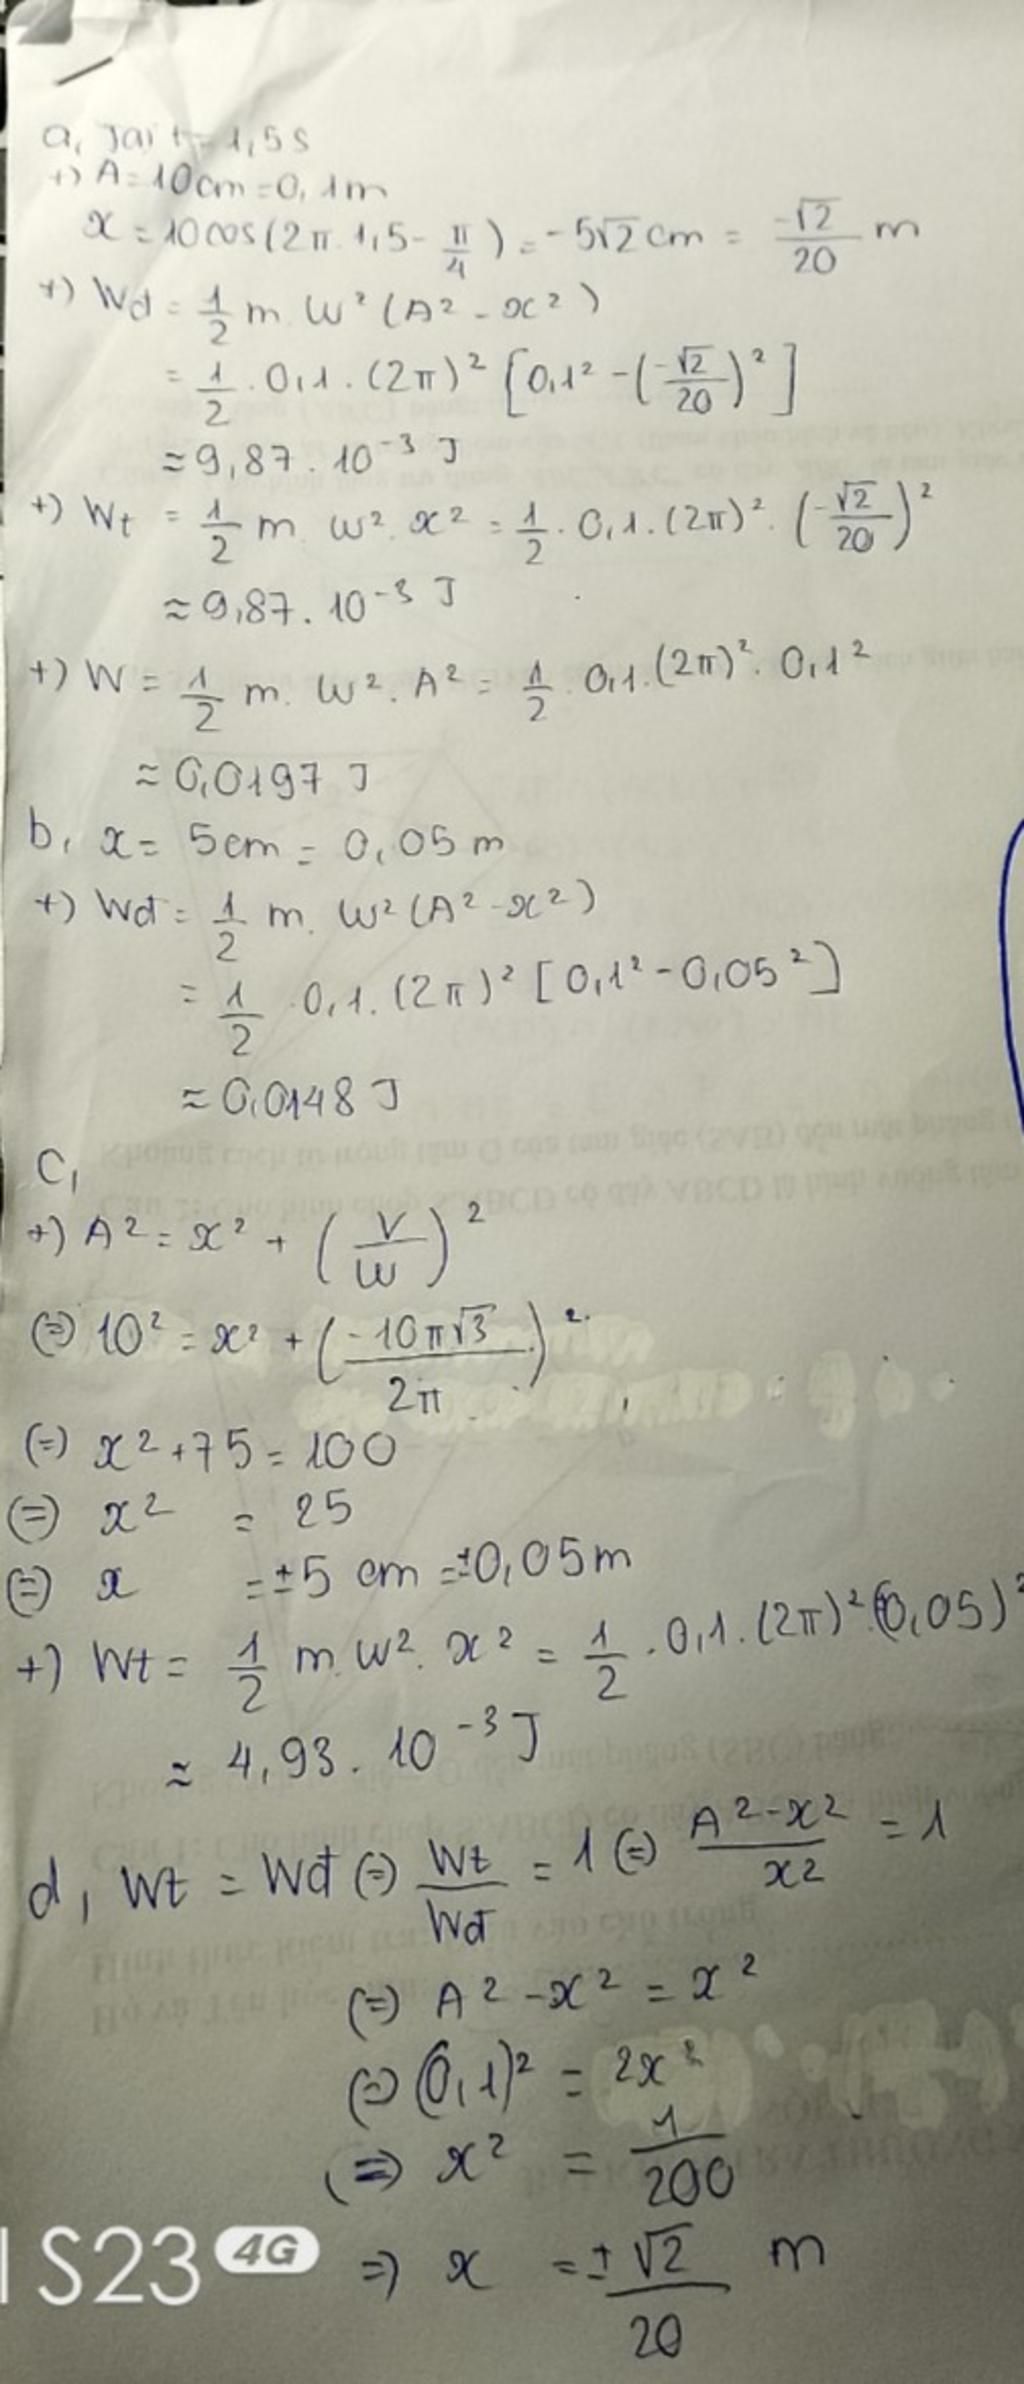 a, Tại t = 1,5s
+) A = 10cm = 0,1m
x = 10cos(2π.1,5 - π/4) = -5√2 cm = -√2/20 m
+) Wđ = 1/2 m w² (A² - x²)
= 1/2 . 0,1 . (2π)² [0,1² - (-√2/20)²]
≈ 9,87 . 10⁻³ J
+) Wt = 1/2 m w² . x² = 1/2 . 0,1 . (2π)² . (-√2/20)²
≈ 9,87 . 10⁻³ J
+) W = 1/2 m. w². A² = 1/2 . 0,1 . (2π)² . 0,1²
≈ 0,0197 J
b, x = 5cm = 0,05 m
+) Wđ = 1/2 m. w² (A² - x²)
= 1/2 . 0,1 . (2π)² [0,1² - 0,05²]
≈ 0,0148 J
c,
+) A² = x² + (v/w)²
(=) 10² = x² + (-10π√3/2π)²
(=) x² + 75 = 100
(=) x² = 25
(=) x = ±5 cm = ±0,05m
+) Wt = 1/2 m. w². x² = 1/2 . 0,1 . (2π)² . (0,05)²
≈ 4,93 . 10⁻³ J
d, Wt = Wđ (=) Wt/Wđ = 1 (=) A² - x²/x² = 1
(=) A² - x² = x²
(=) (0,1)² = 2x²
(=) x² = 1/200
=) x = ±√2/20 m
S23 4G